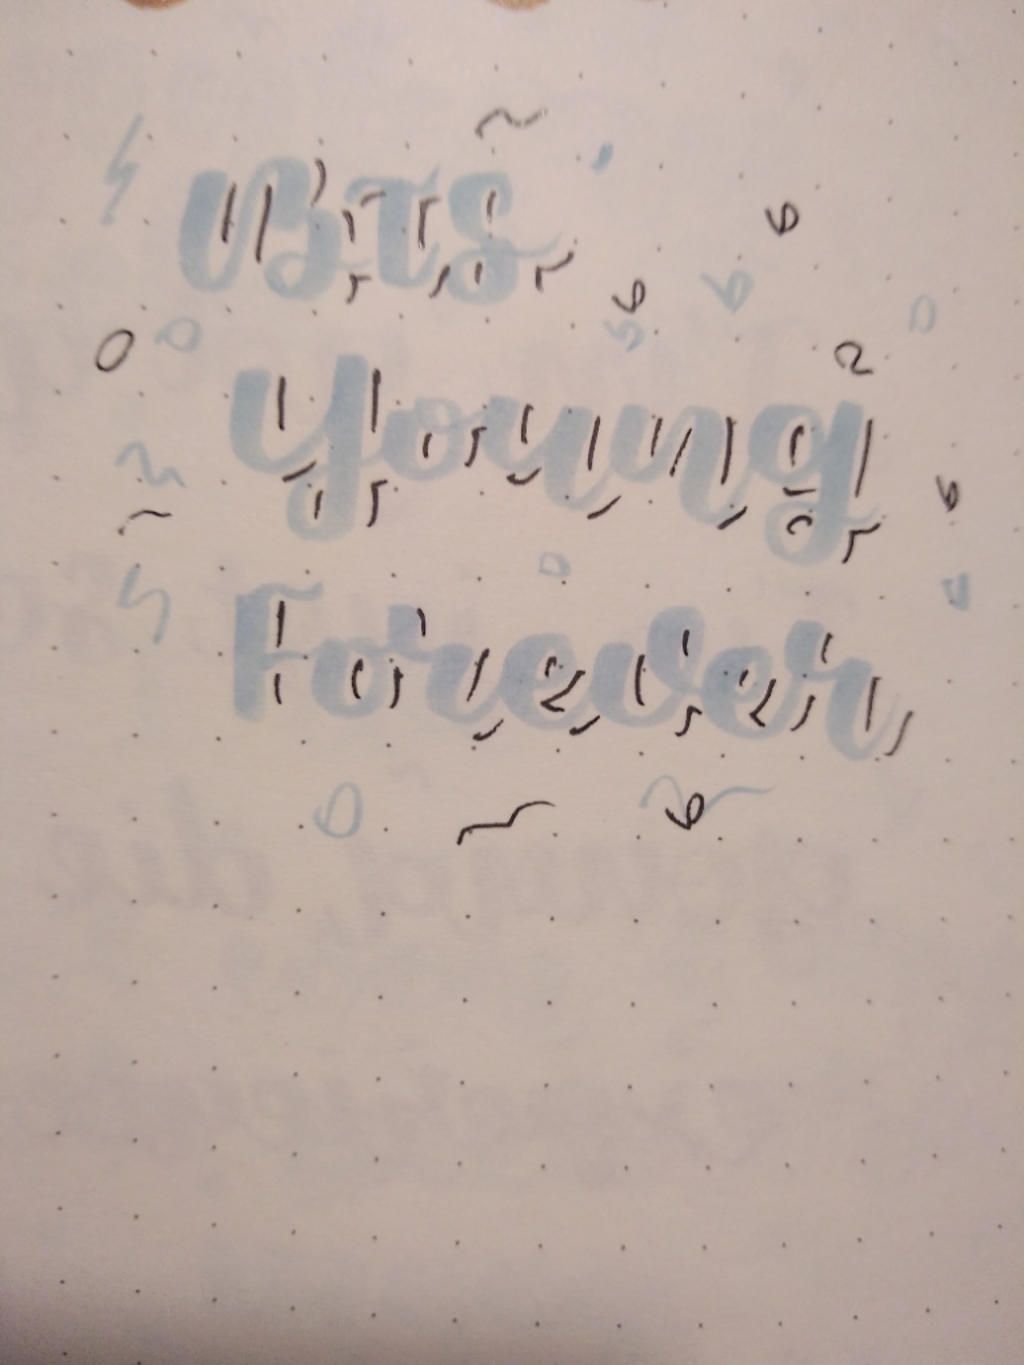 Bts
Young
Forever